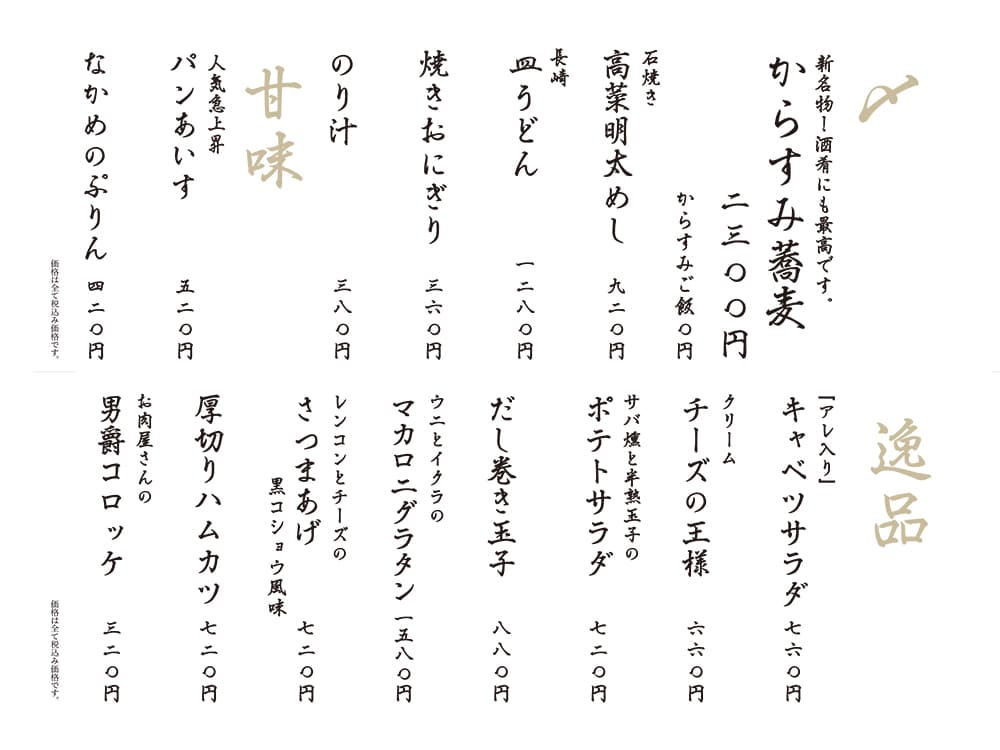 〆
新名物！酒肴にも最高です。
からすみ蕎麦
二三〇〇円
からすみご飯〇円
石焼き
高菜明太めし 九二〇円
長崎
皿うどん 一二八〇円
焼きおにぎり 三六〇円
のり汁 三八〇円
甘味
人気急上昇
パンあいす 五二〇円
なかめのぷりん 四二〇円
価格は全て税込み価格です。
逸品
「アレ入り」
キャベツサラダ 七六〇円
クリーム
チーズの王様 六六〇円
サバ燻と半熟玉子の
ポテトサラダ 七二〇円
だし巻き玉子 八八〇円
ウニとイクラの
マカロニグラタン 一五八〇円
レンコンとチーズの
さつまあげ 七二〇円
黒コショウ風味
厚切りハムカツ 七二〇円
お肉屋さんの
男爵コロッケ 三二〇円
価格は全て税込み価格です。